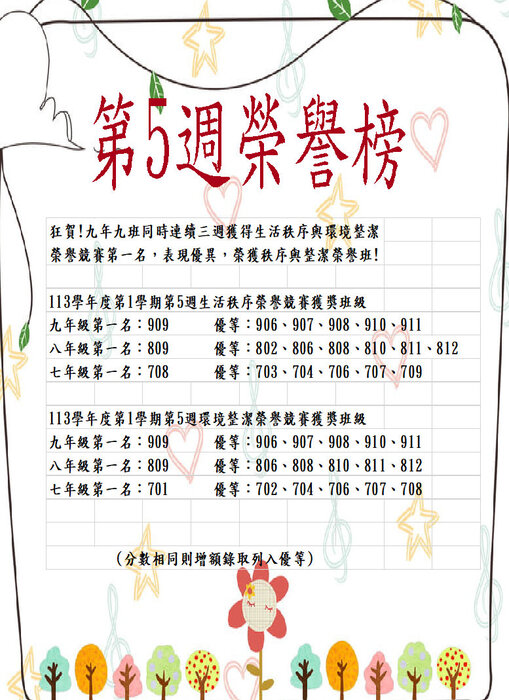 第5週榮譽榜
狂賀!九年九班同時連續三週獲得生活秩序與環境整潔
榮譽競賽第一名，表現優異，榮獲秩序與整潔榮譽班!
113學年度第1學期第5週生活秩序榮譽競賽獲獎班級
九年級第一名：909 優等：906、907、908、910、911
八年級第一名：809 優等：802、806、808、810、811、812
七年級第一名：708 優等：703、704、706、707、709
113學年度第1學期第5週環境整潔榮譽競賽獲獎班級
九年級第一名：909 優等：906、907、908、910、911
八年級第一名：809 優等：806、808、810、811、812
七年級第一名：701 優等：702、704、706、707、708
(分數相同則增額錄取列入優等)